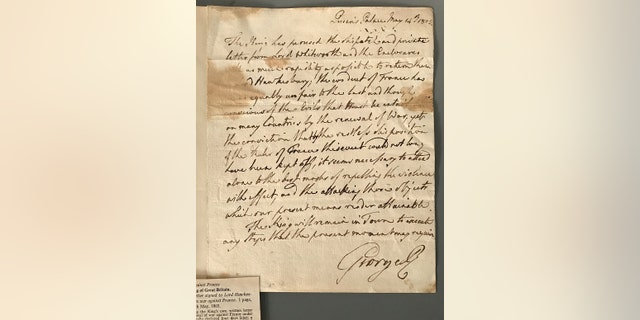 Queen's Palace May 14th 1803
The King has perused the dispatch and private
letter from Lord Whitworth and the Enclosures
as much rapidity as possible to return them
Hawkesbury; the conduct of France has
equally unfair to the last and though
conscious of the Evils that must be
on many Countries by the renewal of War, yet
the conviction that the restless disposition
of the Ruler of France this event could not long
have been kept off, it seems necessary to attend
alone to the best modes of repelling the violence
with effect, and the attacking those objects
which our present means render attainable
The King will remain in Town to execute
any steps that the present moment may require
George R
against France
g of Great Britain.
letter signed to Lord Hawkes-
war against France. 1 page,
May, 1803.